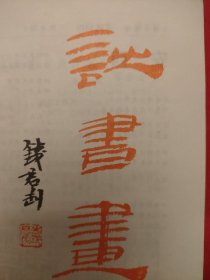 詩書畫
錢君匋